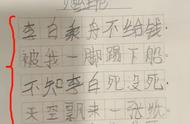 李白乘舟不给钱
被我一脚踢下船
不知李白死没死
天空飘来一张纸